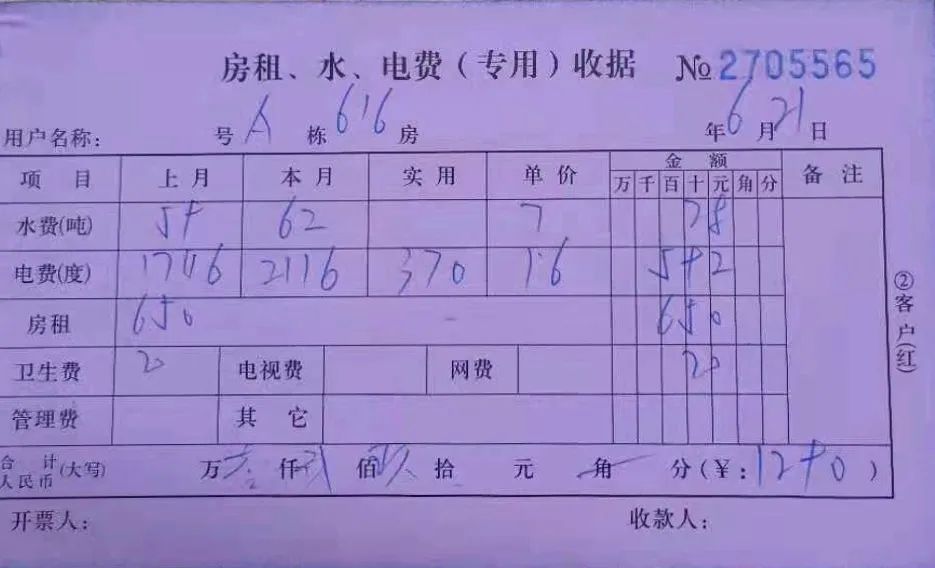 房租、水、电费(专用)收据 № 2705565
用户名称: 号 A 栋 616 房 年 6 月 21 日
项目 上月 本月 实用 单价 金额 备注
万 千 百 十 元 角 分
水费(吨) 58 62 7 28
电费(度) 1746 2116 370 1.6 592
房租 650 650
卫生费 20 电视费 网费 20
管理费 其它
合计人民币(大写) 万 壹 仟 贰 佰 玖 拾 元 角 分 (¥: 1290 )
开票人: 收款人:
②客户(红)